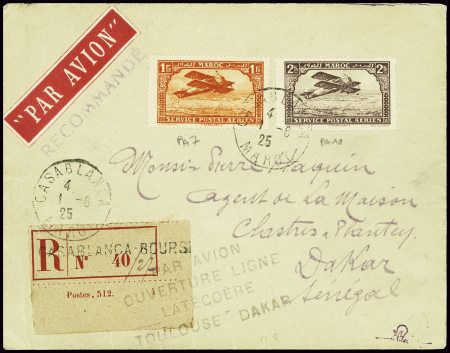 "PAR AVION"
RECOMMANDÉ
1F MAROC 1F
SERVICE POSTAL AÉRIEN
2F MAROC 2F
SERVICE POSTAL AÉRIEN
CASABLANCA
4
1 - 6
25
MAROC
PA7
PA10
CASABLANCA
4
1 - 6
25
Monsieur Pierre Paquin
Agent de la Maison
Chastres &
Dakar
Sénégal
CASABLANCA-BOURSE
R N° 40
Postes, 512.
PAR AVION
OUVERTURE LIGNE
LATECOÈRE
TOULOUSE DAKAR